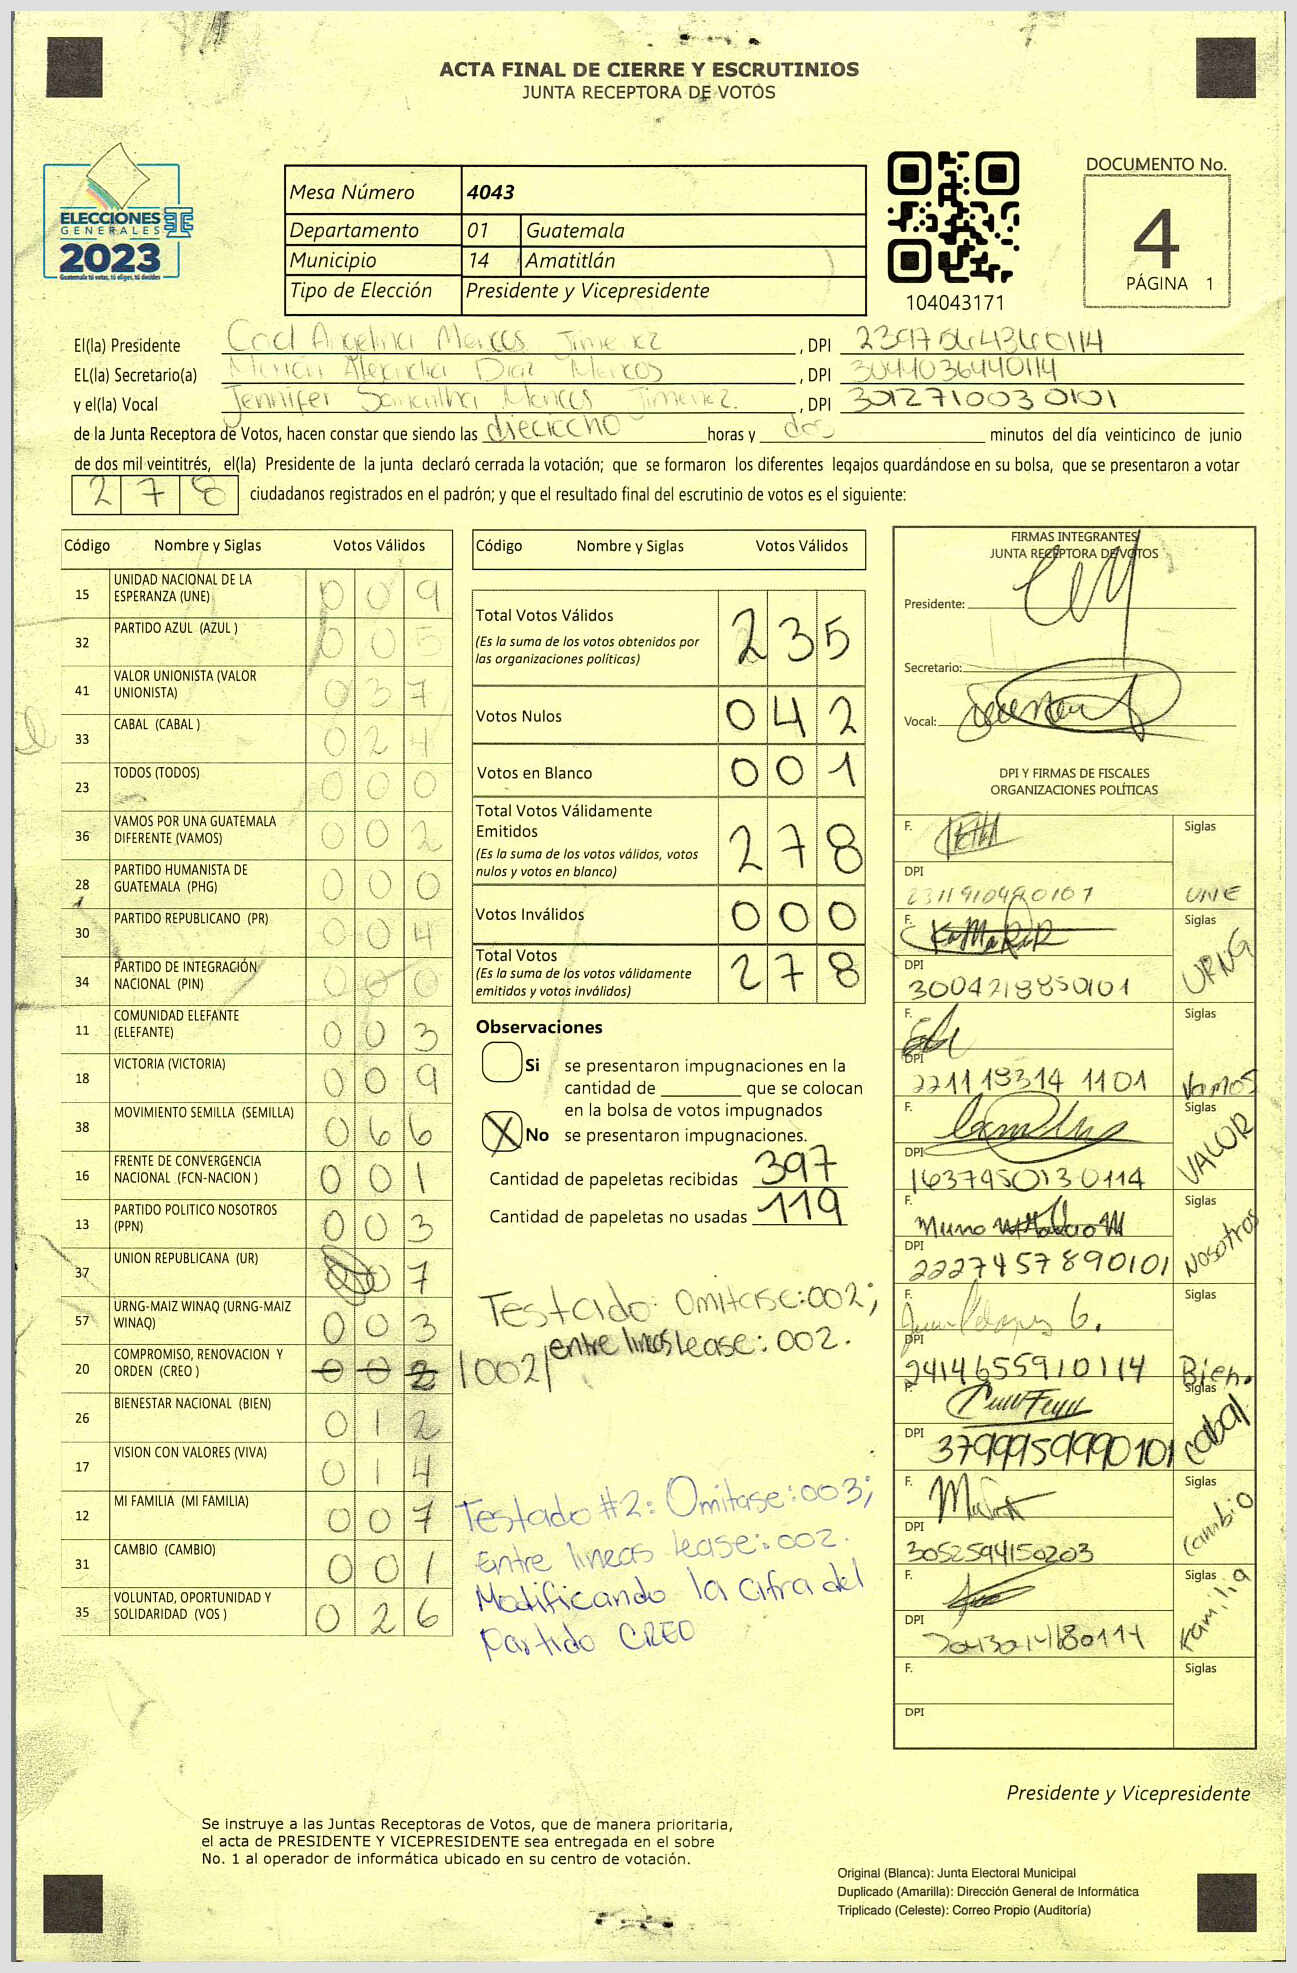 ACTA FINAL DE CIERRE Y ESCRUTINIOS
JUNTA RECEPTORA DE VOTOS
ELECCIONES
GENERALES
2023
Guatemala tú votas, tú eliges, tú decides
Mesa Número 4043
Departamento 01 Guatemala
Municipio 14 Amatitlán
Tipo de Elección Presidente y Vicepresidente
104043171
DOCUMENTO No.
4
PÁGINA 1
El(la) Presidente Angelina Marcos Jimenez , DPI 2397564360114
EL(la) Secretario(a) Alejandra Diaz Marcos , DPI 3044036440114
y el(la) Vocal Jennifer Samantha Marcos Jimenez. , DPI 3012710030101
de la Junta Receptora de Votos, hacen constar que siendo las dieciocho horas y dos minutos del día veinticinco de junio
de dos mil veintitrés, el(la) Presidente de la junta declaró cerrada la votación; que se formaron los diferentes legajos guardándose en su bolsa, que se presentaron a votar
278 ciudadanos registrados en el padrón; y que el resultado final del escrutinio de votos es el siguiente:
Código Nombre y Siglas Votos Válidos
15 UNIDAD NACIONAL DE LA ESPERANZA (UNE) 009
32 PARTIDO AZUL (AZUL ) 005
41 VALOR UNIONISTA (VALOR UNIONISTA) 037
33 CABAL (CABAL ) 024
23 TODOS (TODOS) 000
36 VAMOS POR UNA GUATEMALA DIFERENTE (VAMOS) 002
28 PARTIDO HUMANISTA DE GUATEMALA (PHG) 000
30 PARTIDO REPUBLICANO (PR) 004
34 PARTIDO DE INTEGRACIÓN NACIONAL (PIN) 000
11 COMUNIDAD ELEFANTE (ELEFANTE) 003
18 VICTORIA (VICTORIA) 009
38 MOVIMIENTO SEMILLA (SEMILLA) 066
16 FRENTE DE CONVERGENCIA NACIONAL (FCN-NACION ) 001
13 PARTIDO POLITICO NOSOTROS (PPN) 003
37 UNION REPUBLICANA (UR) 007
57 URNG-MAIZ WINAQ (URNG-MAIZ WINAQ) 003
20 COMPROMISO, RENOVACION Y ORDEN (CREO ) 002 /002/
26 BIENESTAR NACIONAL (BIEN) 012
17 VISION CON VALORES (VIVA) 014
12 MI FAMILIA (MI FAMILIA) 007
31 CAMBIO (CAMBIO) 001
35 VOLUNTAD, OPORTUNIDAD Y SOLIDARIDAD (VOS ) 026
Código Nombre y Siglas Votos Válidos
Total Votos Válidos 235
(Es la suma de los votos obtenidos por
las organizaciones políticas)
Votos Nulos 042
Votos en Blanco 001
Total Votos Válidamente
Emitidos 278
(Es la suma de los votos válidos, votos
nulos y votos en blanco)
Votos Inválidos 000
Total Votos 278
(Es la suma de los votos válidamente
emitidos y votos inválidos)
Observaciones
Si se presentaron impugnaciones en la
cantidad de ______ que se colocan
en la bolsa de votos impugnados
X No se presentaron impugnaciones.
Cantidad de papeletas recibidas 397
Cantidad de papeletas no usadas 119
Testado: Omitase:002;
entre lineas lease: 002.
Testado #2: Omitase:003;
Entre lineas lease:002.
Modificando la cifra del
partido CREO
FIRMAS INTEGRANTES
JUNTA RECEPTORA DE VOTOS
Presidente:
Secretario:
Vocal:
DPI Y FIRMAS DE FISCALES
ORGANIZACIONES POLÍTICAS
F. Siglas
DPI 2311910490107 UNE
F. Siglas
DPI 3004218850101 URNG
F. Siglas
DPI 221118314 1101 Vamos
F. Siglas
DPI 1637450130114 VALOR
F. Siglas
DPI 2227457890101 Nosotros
F. Siglas
DPI 2414655910114 Bien.
F. Siglas
DPI 3799959990101 cabal
F. Siglas
DPI 3052594150203 Cambio
F. Siglas
DPI Familia
F. Siglas
DPI
Presidente y Vicepresidente
Se instruye a las Juntas Receptoras de Votos, que de manera prioritaria,
el acta de PRESIDENTE Y VICEPRESIDENTE sea entregada en el sobre
No. 1 al operador de informática ubicado en su centro de votación.
Original (Blanca): Junta Electoral Municipal
Duplicado (Amarilla): Dirección General de Informática
Triplicado (Celeste): Correo Propio (Auditoría)